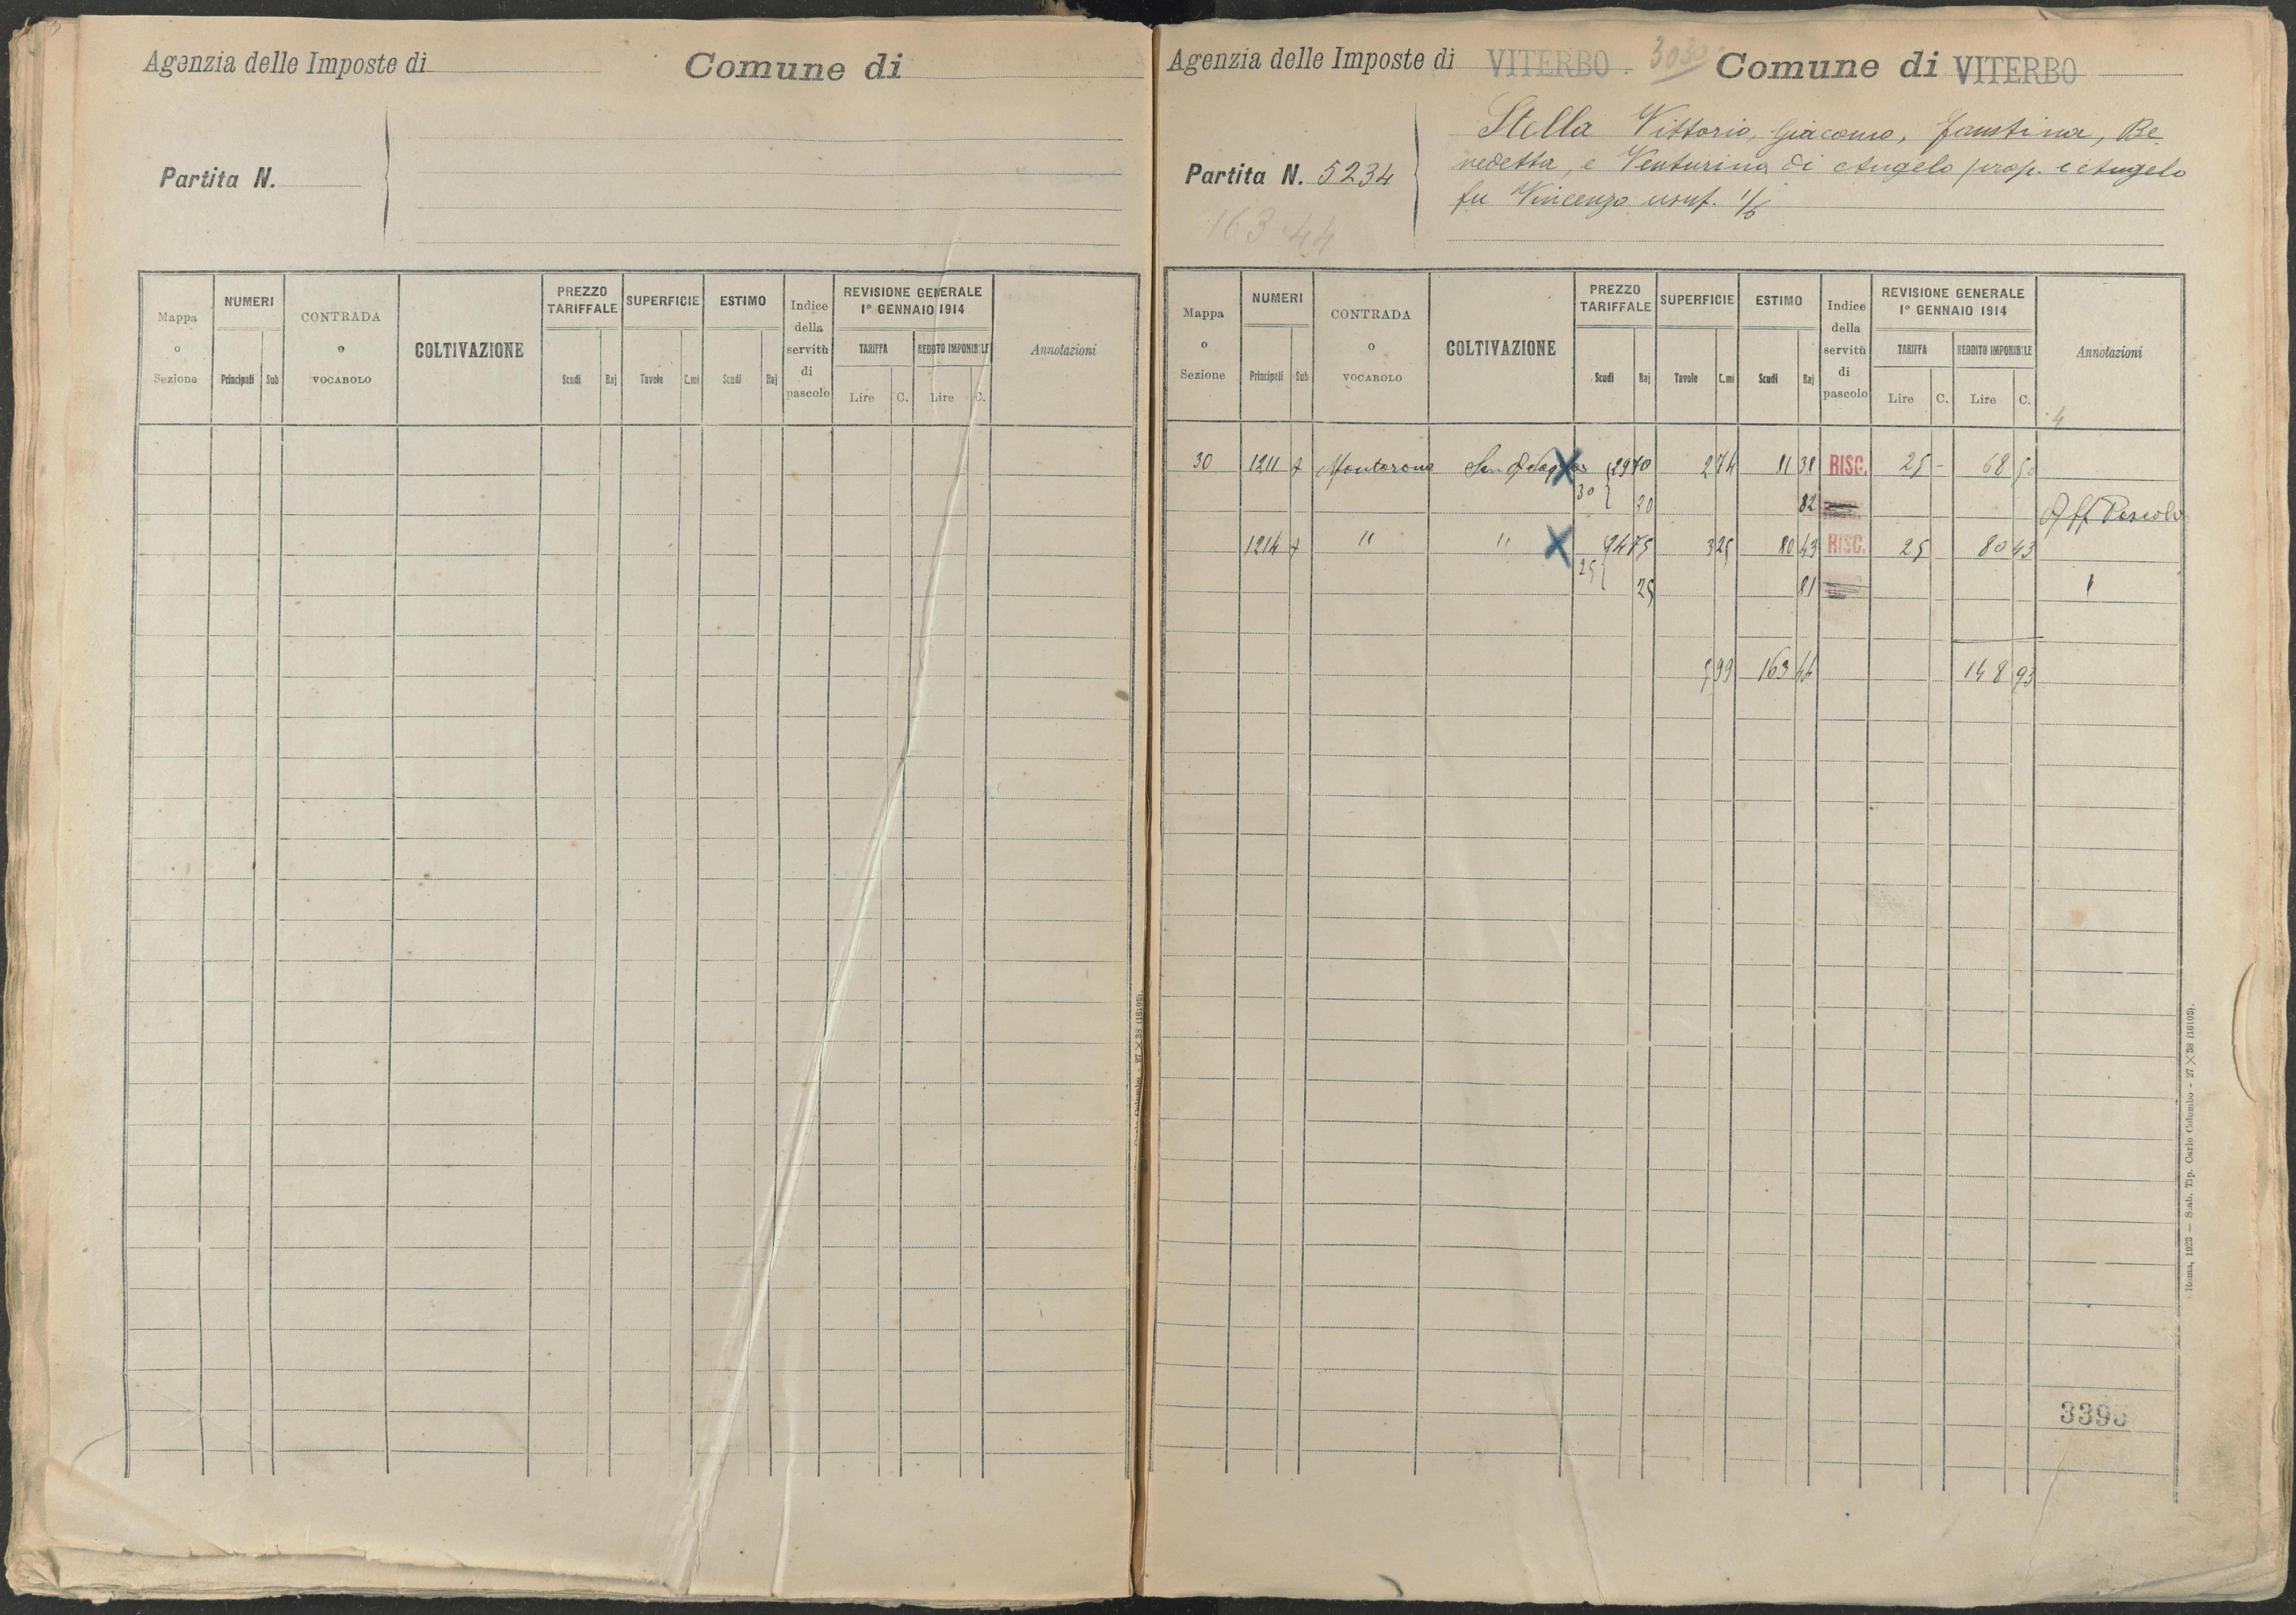 Agenzia delle Imposte di
Comune di
Partita N.
Mappa o Sezione
NUMERI
Principali Sub
CONTRADA o VOCABOLO
COLTIVAZIONE
PREZZO TARIFFALE
Scudi Baj
SUPERFICIE
Tavole C.mi
ESTIMO
Scudi Baj
Indice della servitù di pascolo
REVISIONE GENERALE
1° GENNAIO 1914
TARIFFA
Lire C.
REDDITO IMPONIBILE
Lire C.
Annotazioni
Agenzia delle Imposte di VITERBO. 3030 Comune di VITERBO
Partita N. 5234
163.44
Stella Vittorio, Giacomo, Faustina, Be
nedetta, e Venturina di Angelo prop. e Angelo
fu Vincenzo usuf. 1/6
Mappa o Sezione
NUMERI
Principali Sub
CONTRADA o VOCABOLO
COLTIVAZIONE
PREZZO TARIFFALE
Scudi Baj
SUPERFICIE
Tavole C.mi
ESTIMO
Scudi Baj
Indice della servitù di pascolo
REVISIONE GENERALE
1° GENNAIO 1914
TARIFFA
Lire C.
REDDITO IMPONIBILE
Lire C.
Annotazioni
4
30 1211 Montorone 29 70 2 74 81 38 RISC. 25 - 68 50
30 30 82 Aff Pascolo
1214 " " X 24 75 3 25 80 43 RISC. 25 80 43
25 25 81
5 99 163 44 148 93
3395
Roma, 1923 — Stab. Tip. Carlo Colombo - 27 × 38 (16103).